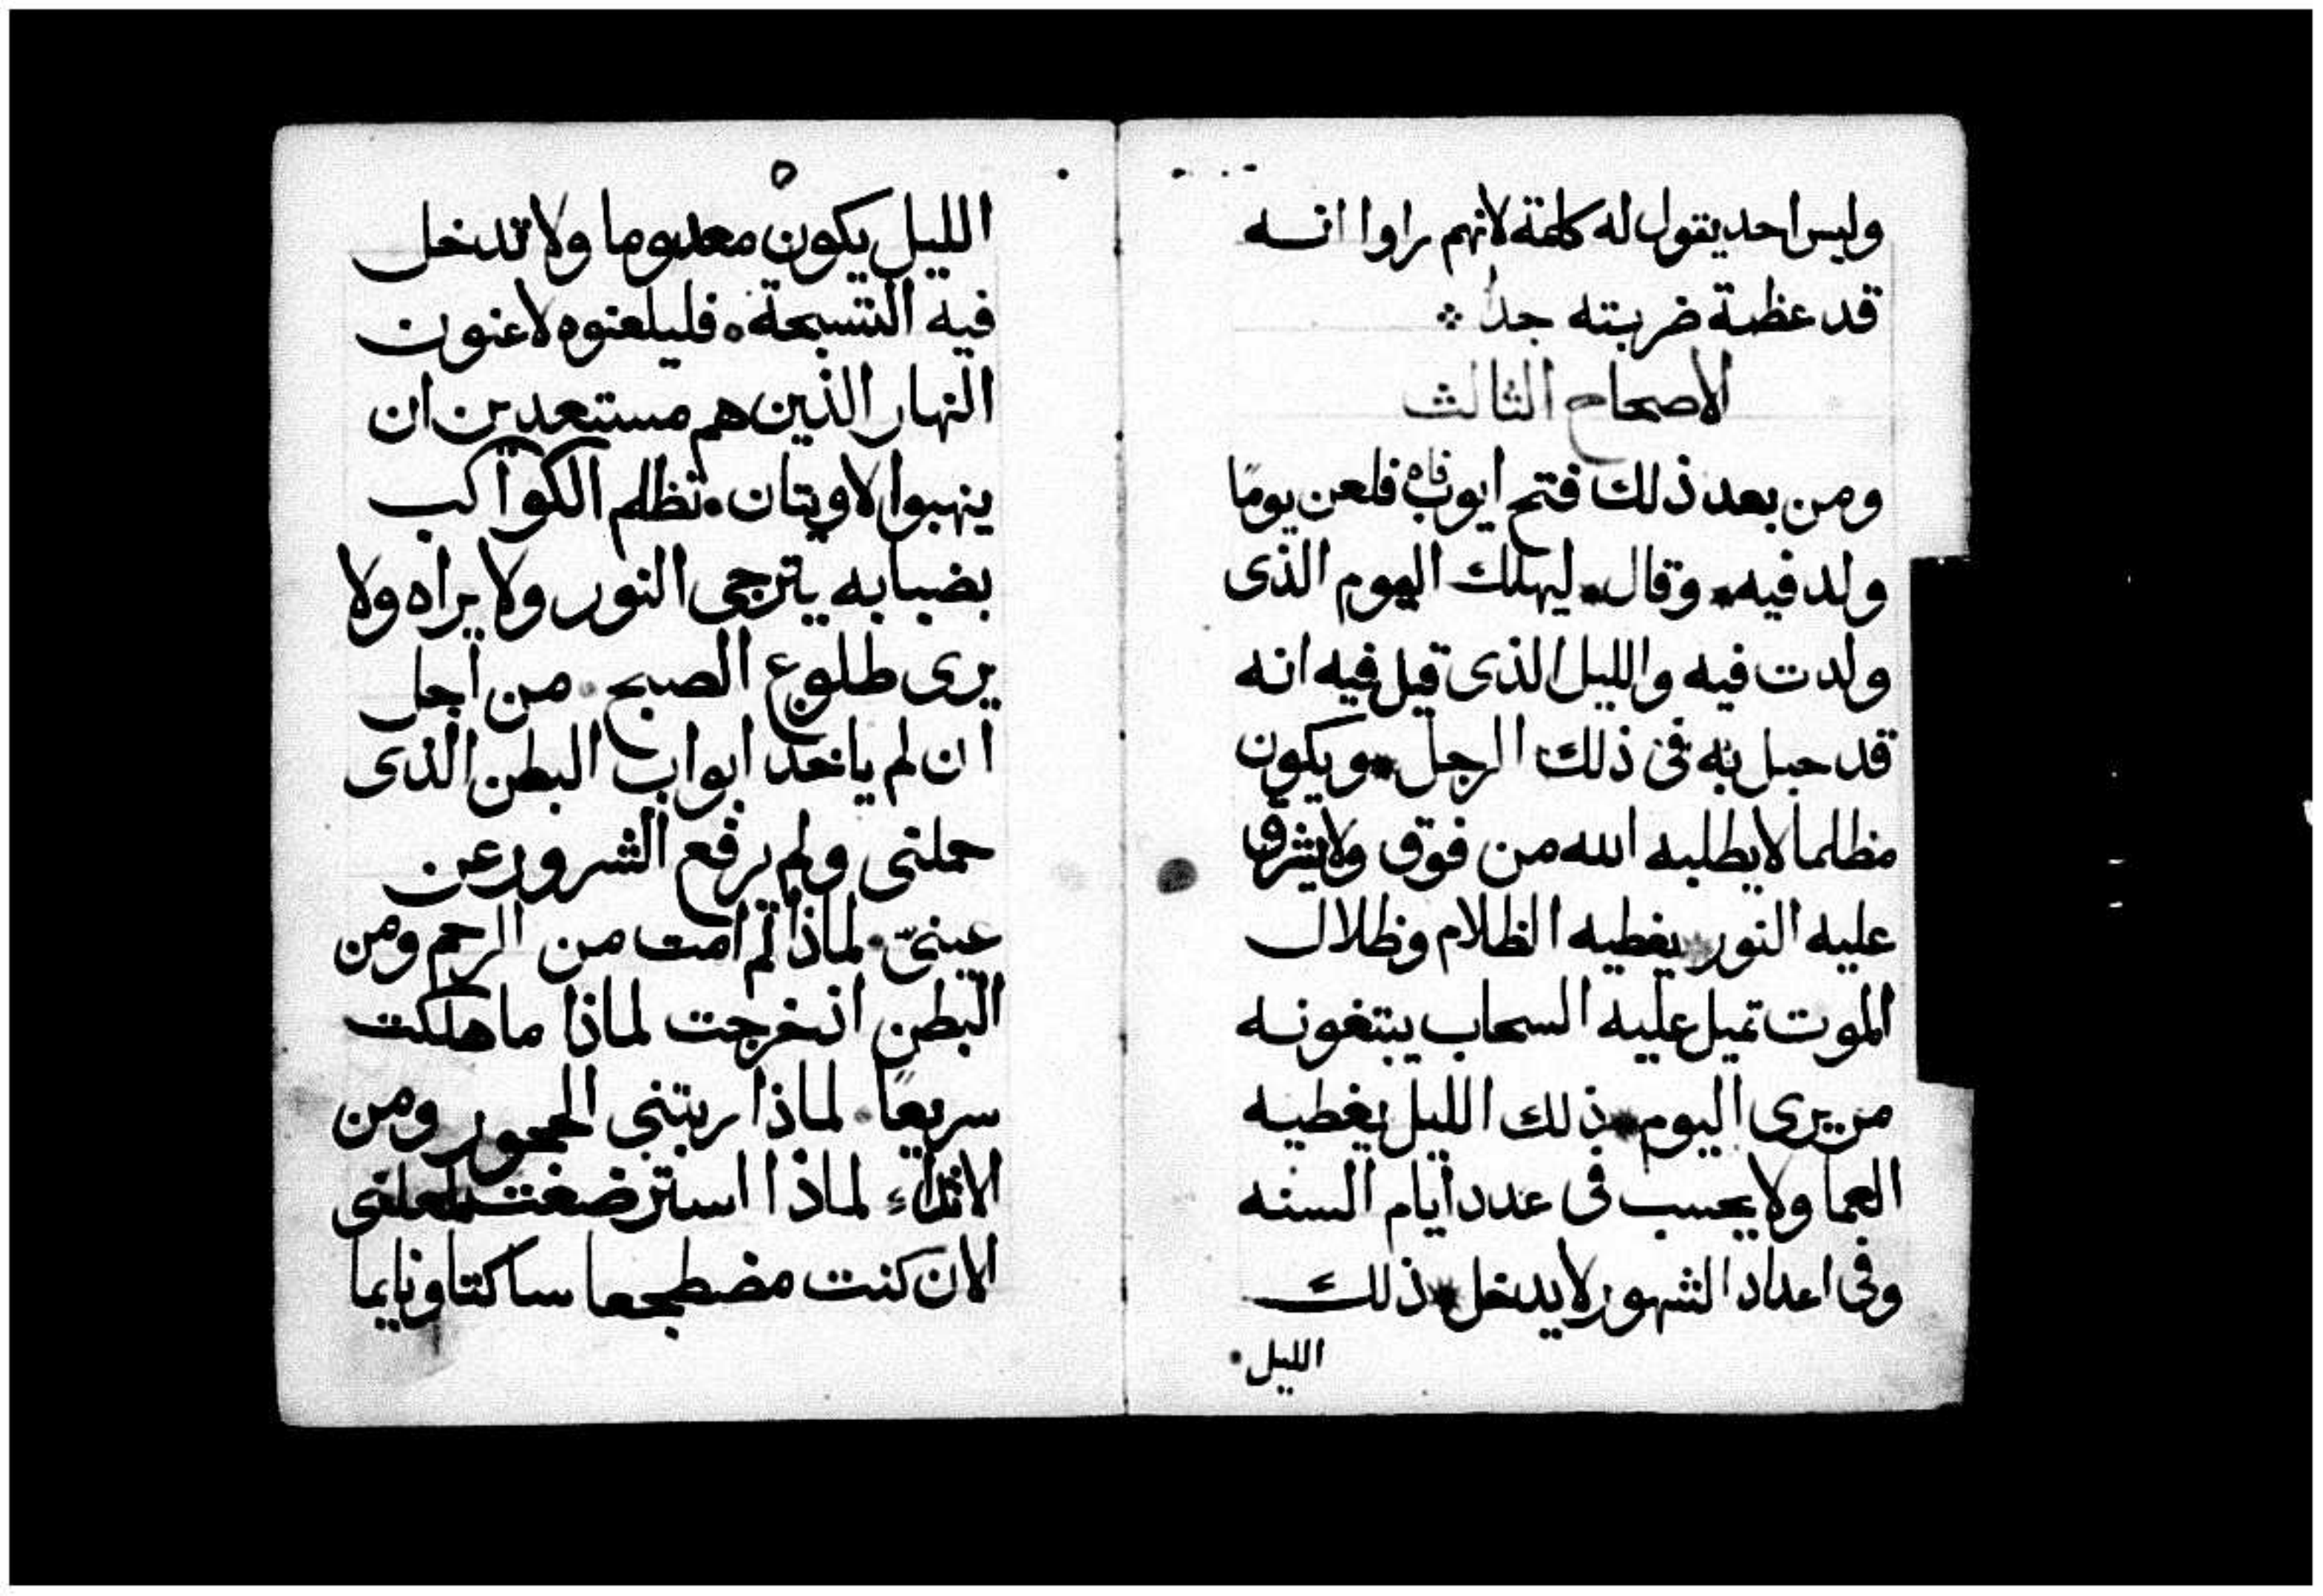 وليس احد يتول له كلمة لانهم راوا انه
قد عظمة ضربته جداً
الاصحاح الثالث
ومن بعد ذلك فتح ايوب فاه فلعن يومًا
ولد فيه وقال ليهلك اليوم الذى
ولدت فيه والليل الذى قيل فيه انه
قد حبل به فى ذلك الرجل ويكون
مظلما لا يطلبه الله من فوق ولا يشرق
عليه النور يغطيه الظلام وظلال
الموت تميل عليه السحاب يبتغونه
من يرى اليوم ذلك الليل يغطيه
العما ولا يحسب فى عدد ايام السنه
وفى اعداد الشهور لا يدخل ذلك
الليل
٥
الليل يكون معدوما ولا تدخل
فيه التسبحة فليلعنوه لاعنون
النهار الذين هم مستعدين ان
ينهبوا لاويتان تظلم الكواكب
بضبابه يترجى النور ولا يراه ولا
يرى طلوع الصبح من اجل
ان لم ياخد ابواب البطن الذى
حملتى ولم يرفع الشرور عن
عينىّ لماذا لم امت من الرحم ومن
البطن اذ خرجت لماذا ما هلكت
سريعًا لماذا ربتنى الحجور ومن
الاثداء لماذا استرضعت لعلنى
الان كنت مضطجعا ساكتا ونايما